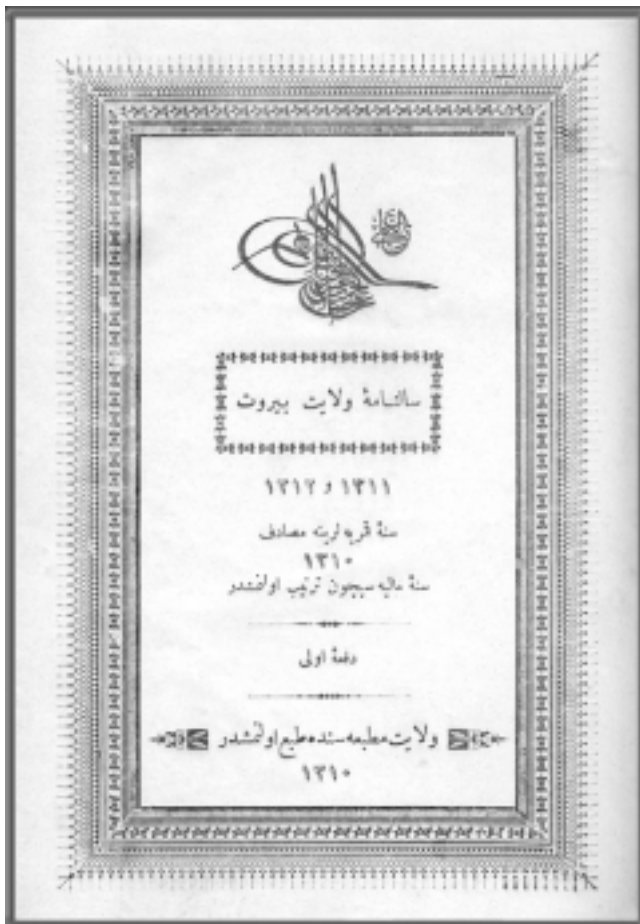 سالنامهٔ ولايت بيروت
١٣١١ و ١٣١٢
سنهٔ قمريه لرينه مصادف
١٣١٠
سنهٔ ماليه سيچون ترتيب اولنمشدر
دفعهٔ اولى
ولايت مطبعه سنده طبع اولنمشدر
١٣١٠